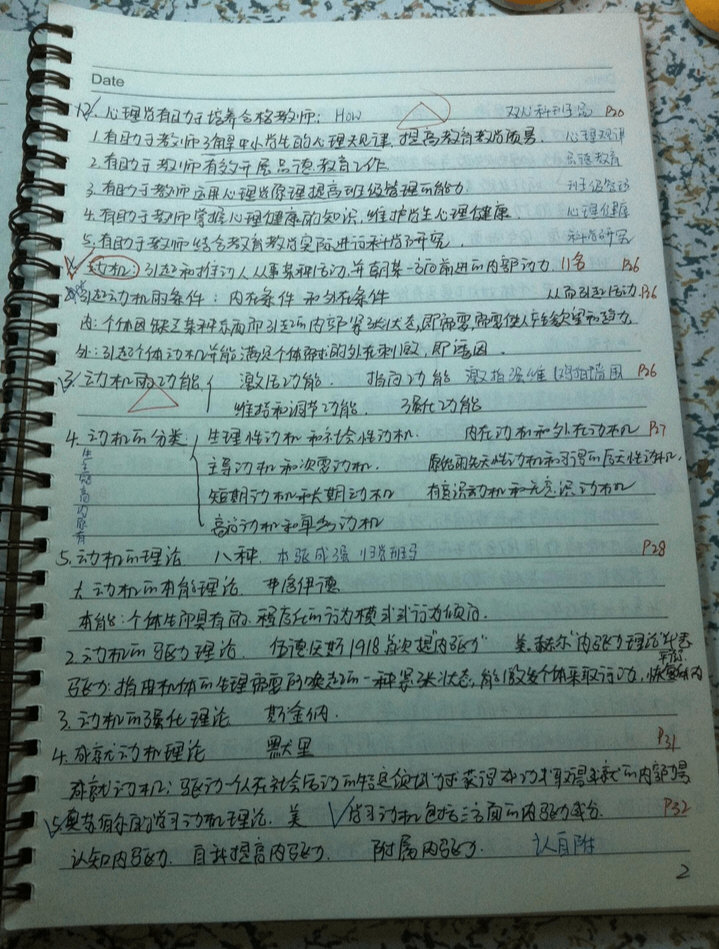 Date
心理学有助于培养合格教师: How P20
1.有助于教师了解中小学生的心理规律,提高教育教学质量. 心理规律
2.有助于教师有效开展品德教育工作. 品德教育
3.有助于教师运用心理学原理提高班级管理的能力 班级管理
4.有助于教师掌握心理健康的知识,维护学生心理健康. 心理健康
5.有助于教师结合教育教学实际进行科学研究 科学研究
动机:引起和推动人从事某种活动,并朝某一方向前进的内部动力. P26
引起动机的条件:内在条件 和外在条件 从而引起活动.P26
内:个体因缺乏某种东西而引起的内部紧张状态,即需要,需要使人产生欲望和动力
外:引起个体动机并能满足个体需求的外在刺激,即诱因.
3.动机的功能 激活功能. 指向功能 激指强维 P26
维持和调节功能. 强化功能
4.动机的分类: 生理性动机和社会性动机. 内在动机和外在动机 P27
主导动机和次要动机. 原始的先天性动机和习得的后天性动机.
短期动机和长期动机 有意识动机和无意识动机
高尚动机和卑劣动机
5.动机的理论 八种. 本驱成强归 P28
1.动机的本能理论. 弗洛伊德
本能:个体生而具有的
2.动机的驱力理论 伍德沃斯1918首次提"内驱力" 美.赫尔"内驱力理论"代表
驱力:指由机体的生理需要所唤起的一种紧张状态,能激发个体采取行动,恢复
3.动机的强化理论 斯金纳.
4.成就动机理论 默里 P31
成就动机:驱动一个人在社会活动的特定领域力求获得成功或取得成就的内部
5.奥苏伯尔的学习动机理论. 美 学习动机包括三方面的内驱力成分. P32
认知内驱力. 自我提高内驱力. 附属内驱力. 认自附
2